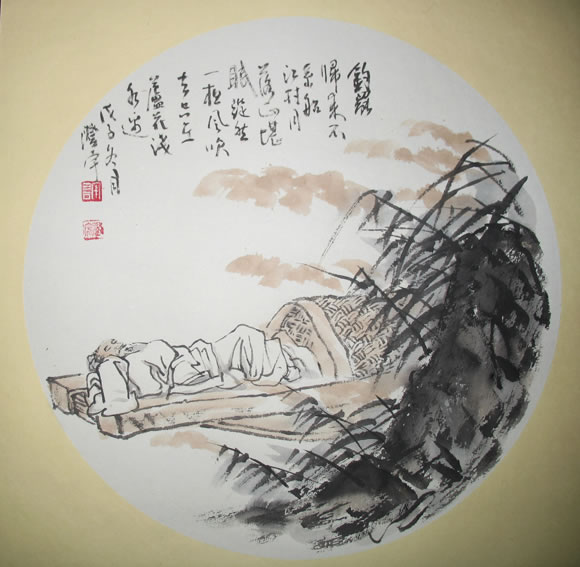 釣罷
歸來不
系船
江村月
落正堪
眠縱然
一夜風吹
去只在
蘆花淺
水邊
戊子冬月